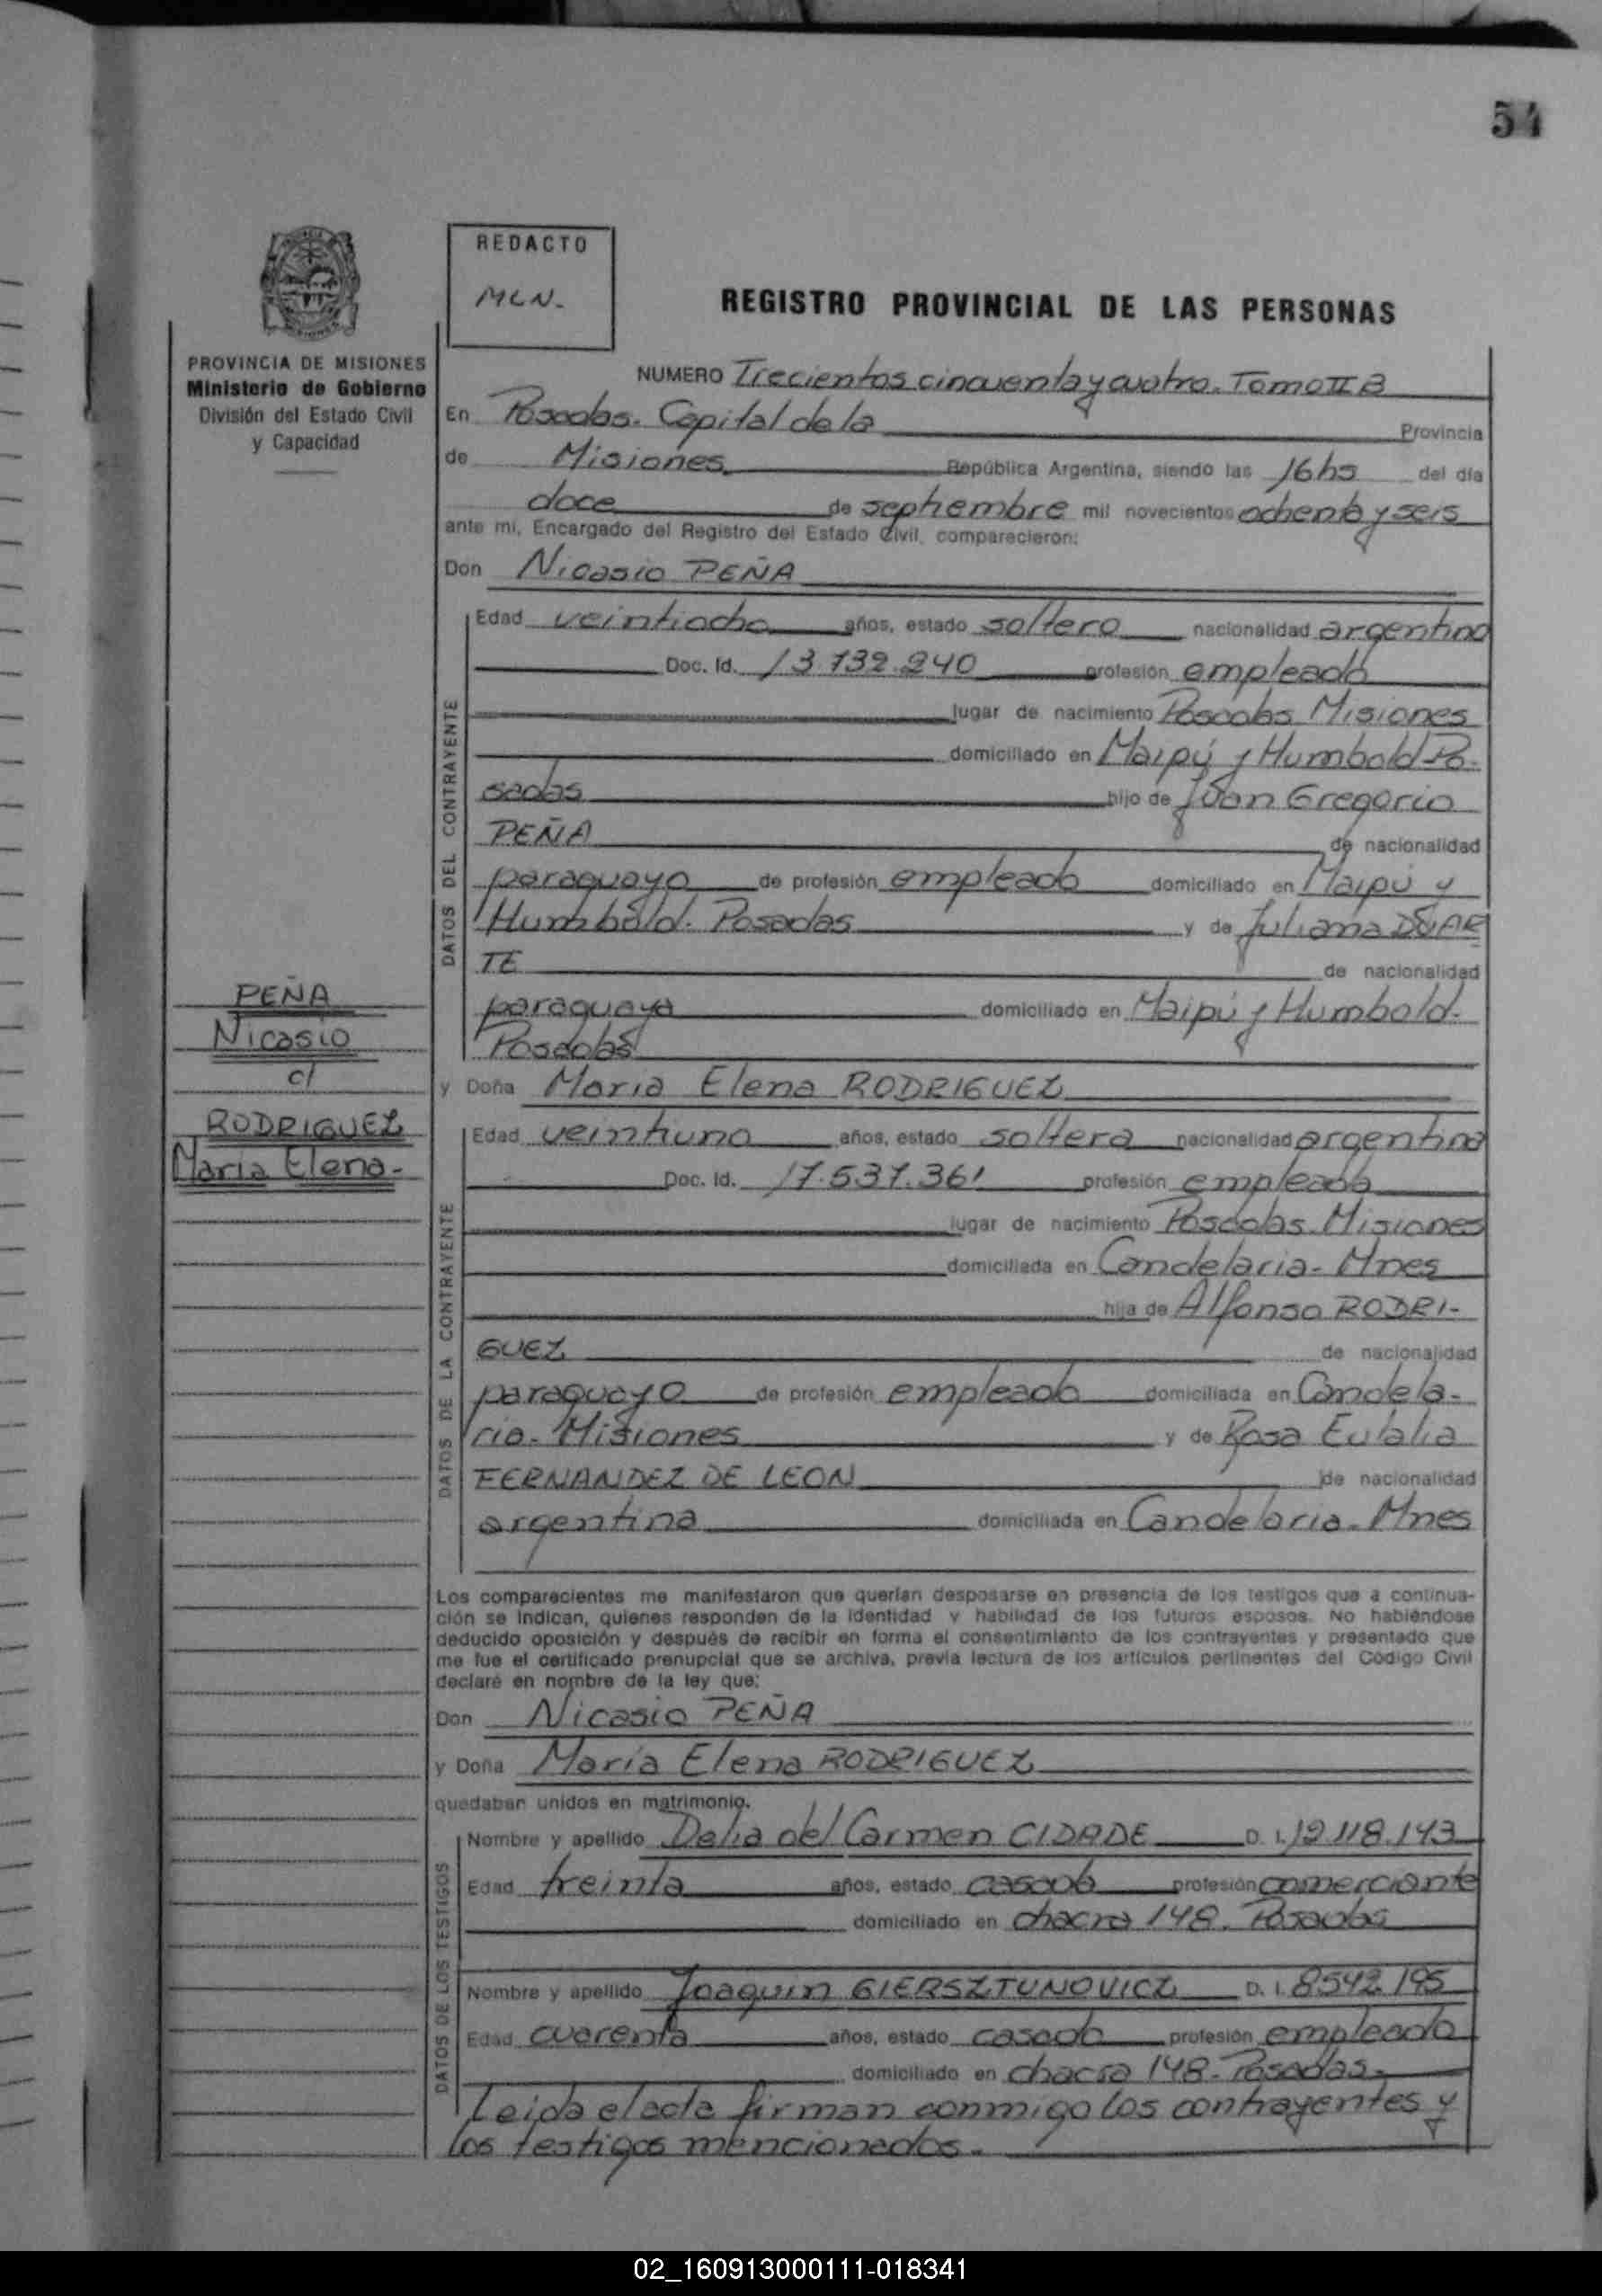 54
REDACTO
MLN.-
REGISTRO PROVINCIAL DE LAS PERSONAS
PROVINCIA DE MISIONES
Ministerio de Gobierno
División del Estado Civil
y Capacidad
NUMERO Trecientos cincuenta y cuatro. Tomo II B
En Posadas. Capital de la Provincia
de Misiones República Argentina, siendo las 16hs del día
doce de septiembre mil novecientos ochenta y seis
ante mi, Encargado del Registro del Estado Civil, comparecieron:
Don Nicasio PEÑA
DATOS DEL CONTRAYENTE
Edad veintiocho años, estado soltero nacionalidad argentina
Doc. Id. 13.732.240 profesión empleado
lugar de nacimiento Posadas Misiones
domiciliado en Maipú y Humbold-Po-
sadas hijo de Juan Gregorio
PEÑA de nacionalidad
paraguayo de profesión empleado domiciliado en Maipú y
Humbold. Posadas y de Juliana DUAR
TE de nacionalidad
paraguaya domiciliado en Maipú y Humbold.
Posadas
PEÑA
Nicasio
c/
RODRIGUEZ
Maria Elena-
y Doña Maria Elena RODRIGUEZ
DATOS DE LA CONTRAYENTE
Edad veintiuno años, estado soltera nacionalidad argentina
Doc. Id. 17.537.361 profesión empleada
lugar de nacimiento Posadas Misiones
domiciliada en Candelaria- Mnes
hija de Alfonso RODRI-
GUEZ de nacionalidad
paraguayo de profesión empleado domiciliada en Candela-
ria- Misiones y de Rosa Eulalia
FERNANDEZ DE LEON de nacionalidad
argentina domiciliada en Candelaria- Mnes
Los comparecientes me manifestaron que querían desposarse en presencia de los testigos que a continua-
ción se indican, quienes responden de la identidad y habilidad de los futuros esposos. No habiéndose
deducido oposición y después de recibir en forma el consentimiento de los contrayentes y presentado que
me fue el certificado prenupcial que se archiva, previa lectura de los artículos pertinentes del Código Civil
declaré en nombre de la ley que:
Don Nicasio PEÑA
y Doña María Elena RODRIGUEZ
quedaban unidos en matrimonio.
DATOS DE LOS TESTIGOS
Nombre y apellido Delia del Carmen CIDADE D. I. 12.118.143
Edad treinta años, estado casada profesión comerciante
domiciliado en chacra 148. Posadas
Nombre y apellido Joaquin GIERSZTUNOVICZ D. I. 8542.195
Edad cuarenta años, estado casado profesión empleado
domiciliado en chacra 148- Posadas-
Leida el acta firman conmigo los contrayentes y
los testigos mencionados.-
02_160913000111-018341